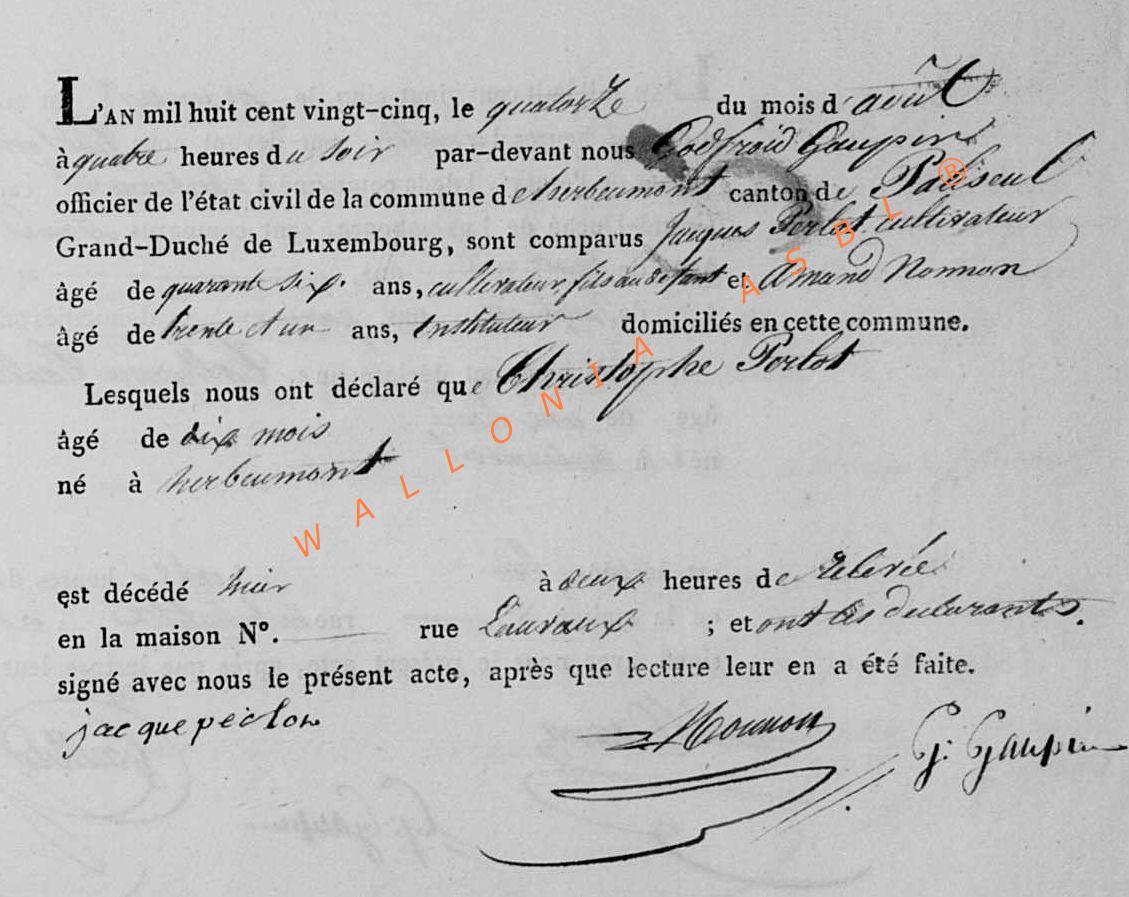 L'AN mil huit cent vingt-cinq, le quatorze du mois d'août
à quatre heures du soir par-devant nous Godfroid Gaupin
officier de l'état civil de la commune de herbeumont canton de Paliseul
Grand-Duché de Luxembourg, sont comparus Jacques Perlot cultivateur
âgé de quarant six. ans, cultivateur, fils au défant et Amand Nonnon
âgé de trente et un ans, Instituteur domiciliés en cette commune.
Lesquels nous ont déclaré que Christophe Perlot
âgé de dix mois
né à herbeumont
est décédé hier à deux heures de relevée
en la maison N°. rue Lauvaux ; et ont les declarants.
signé avec nous le présent acte, après que lecture leur en a été faite.
jacque peclon Nonnon G. Gaupin
WALLONIA ASBL ®